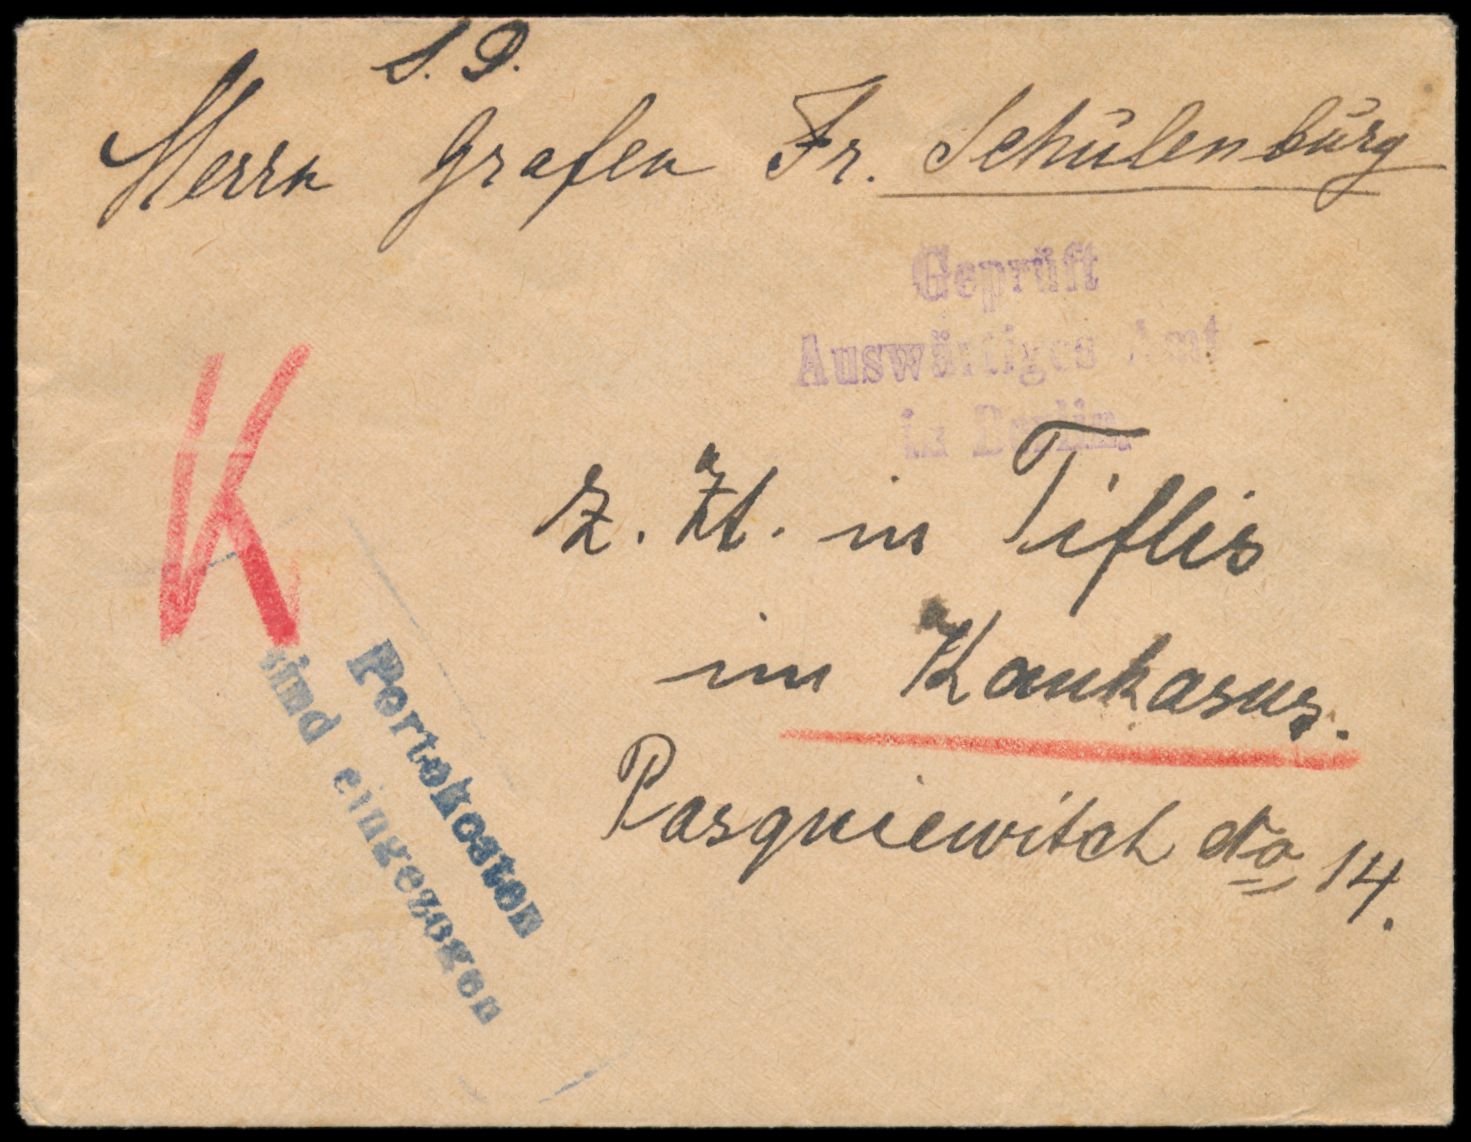 S. D.
Herrn Grafen Fr. Schulenburg
Geprüft
Auswärtiges Amt
in Berlin.
z. Zt. in Tiflis
im Kaukasus.
Pasquiewitch 14.
K
Portokosten
sind eingezogen